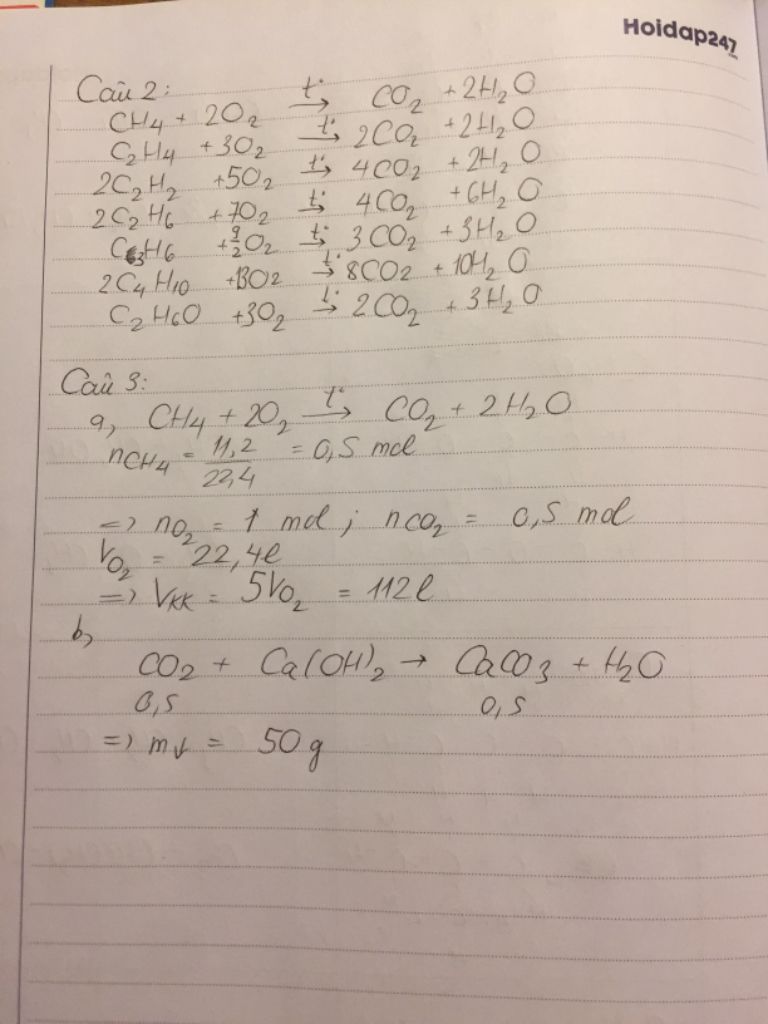 Hoidap247
Câu 2:
CH4 + 2O2 t° → CO2 + 2H2O
C2H4 + 3O2 t° → 2CO2 + 2H2O
2C2H2 + 5O2 t° → 4CO2 + 2H2O
2C2H6 + 7O2 t° → 4CO2 + 6H2O
C3H6 + 9/2 O2 t° → 3CO2 + 3H2O
2C4H10 + 13O2 t° → 8CO2 + 10H2O
C2H6O + 3O2 t° → 2CO2 + 3H2O
Câu 3:
a, CH4 + 2O2 t° → CO2 + 2H2O
nCH4 = 11,2/22,4 = 0,5 mol
=> nO2 = 1 mol ; nCO2 = 0,5 mol
VO2 = 22,4l
=> VKK = 5VO2 = 112l
b,
CO2 + Ca(OH)2 → CaCO3 + H2O
0,5 0,5
=> m↓ = 50g